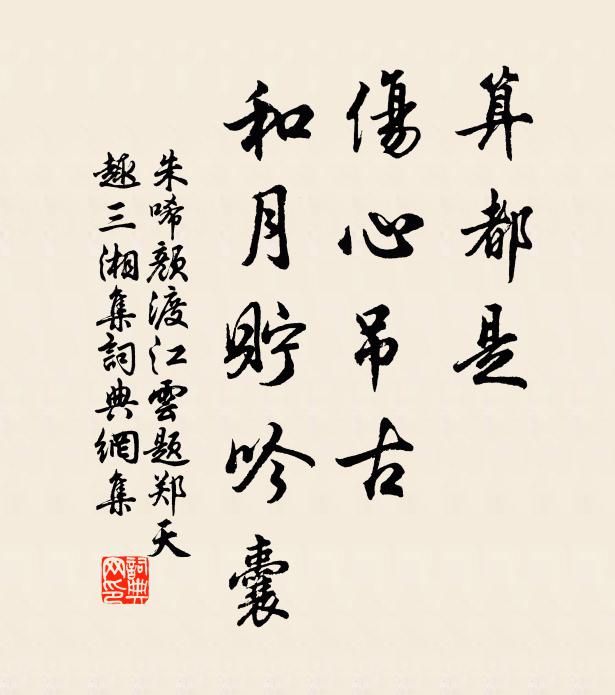 算都是
傷心吊古
和月貯吟囊
朱唏顏渡江雲題郑天
趣三湘集詞典網集
詞典网印